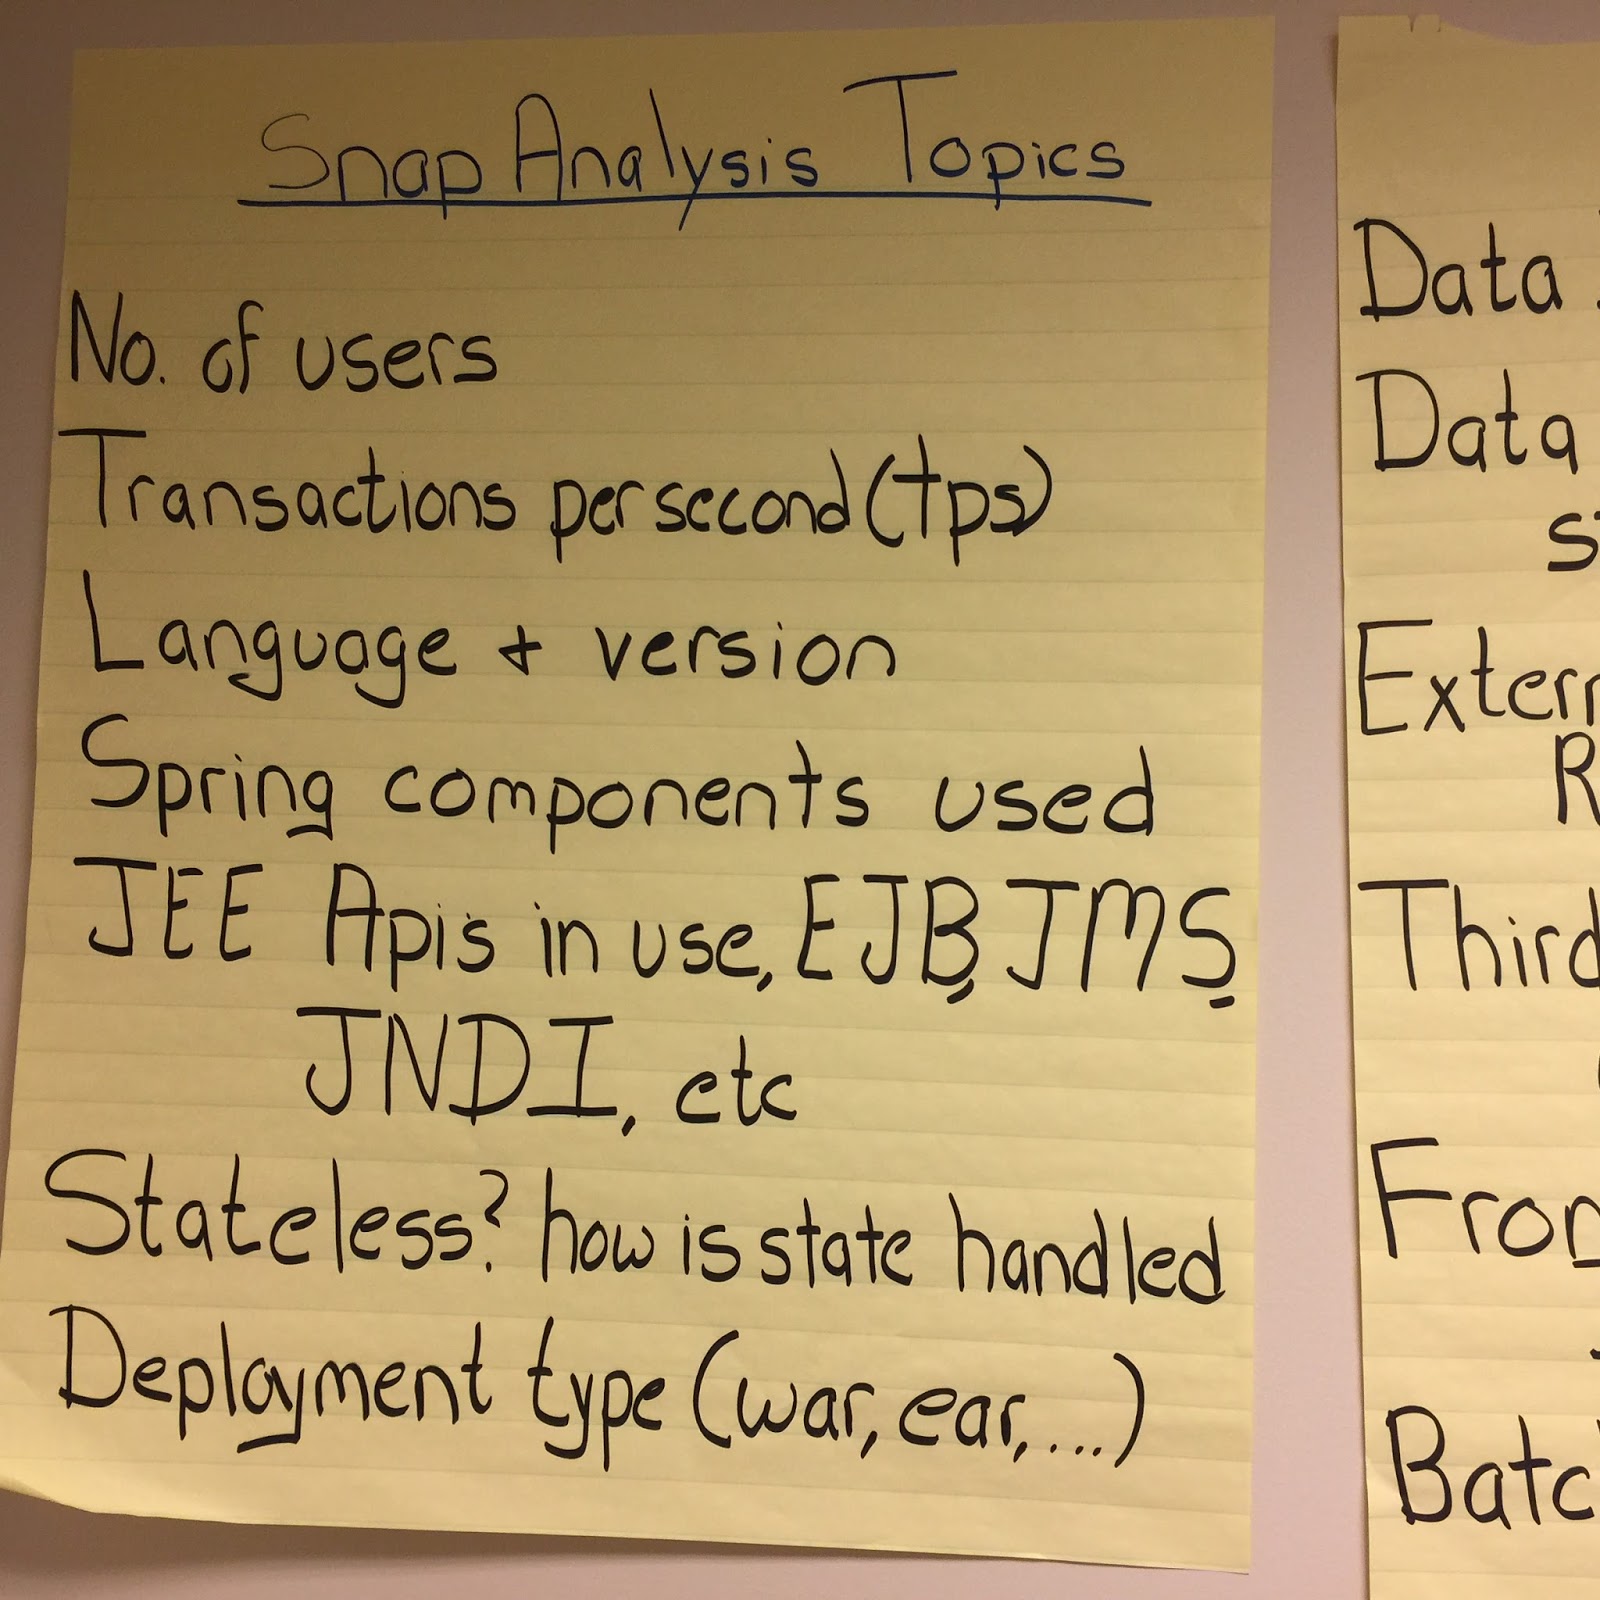 Snap Analysis Topics
No. of users
Transactions per second (tps)
Language + version
Spring components used
JEE Api's in use, EJB, JMS,
JNDI, etc
Stateless? how is state handled
Deployment type (war, ear, ...)
Data
Data
Third
Batc